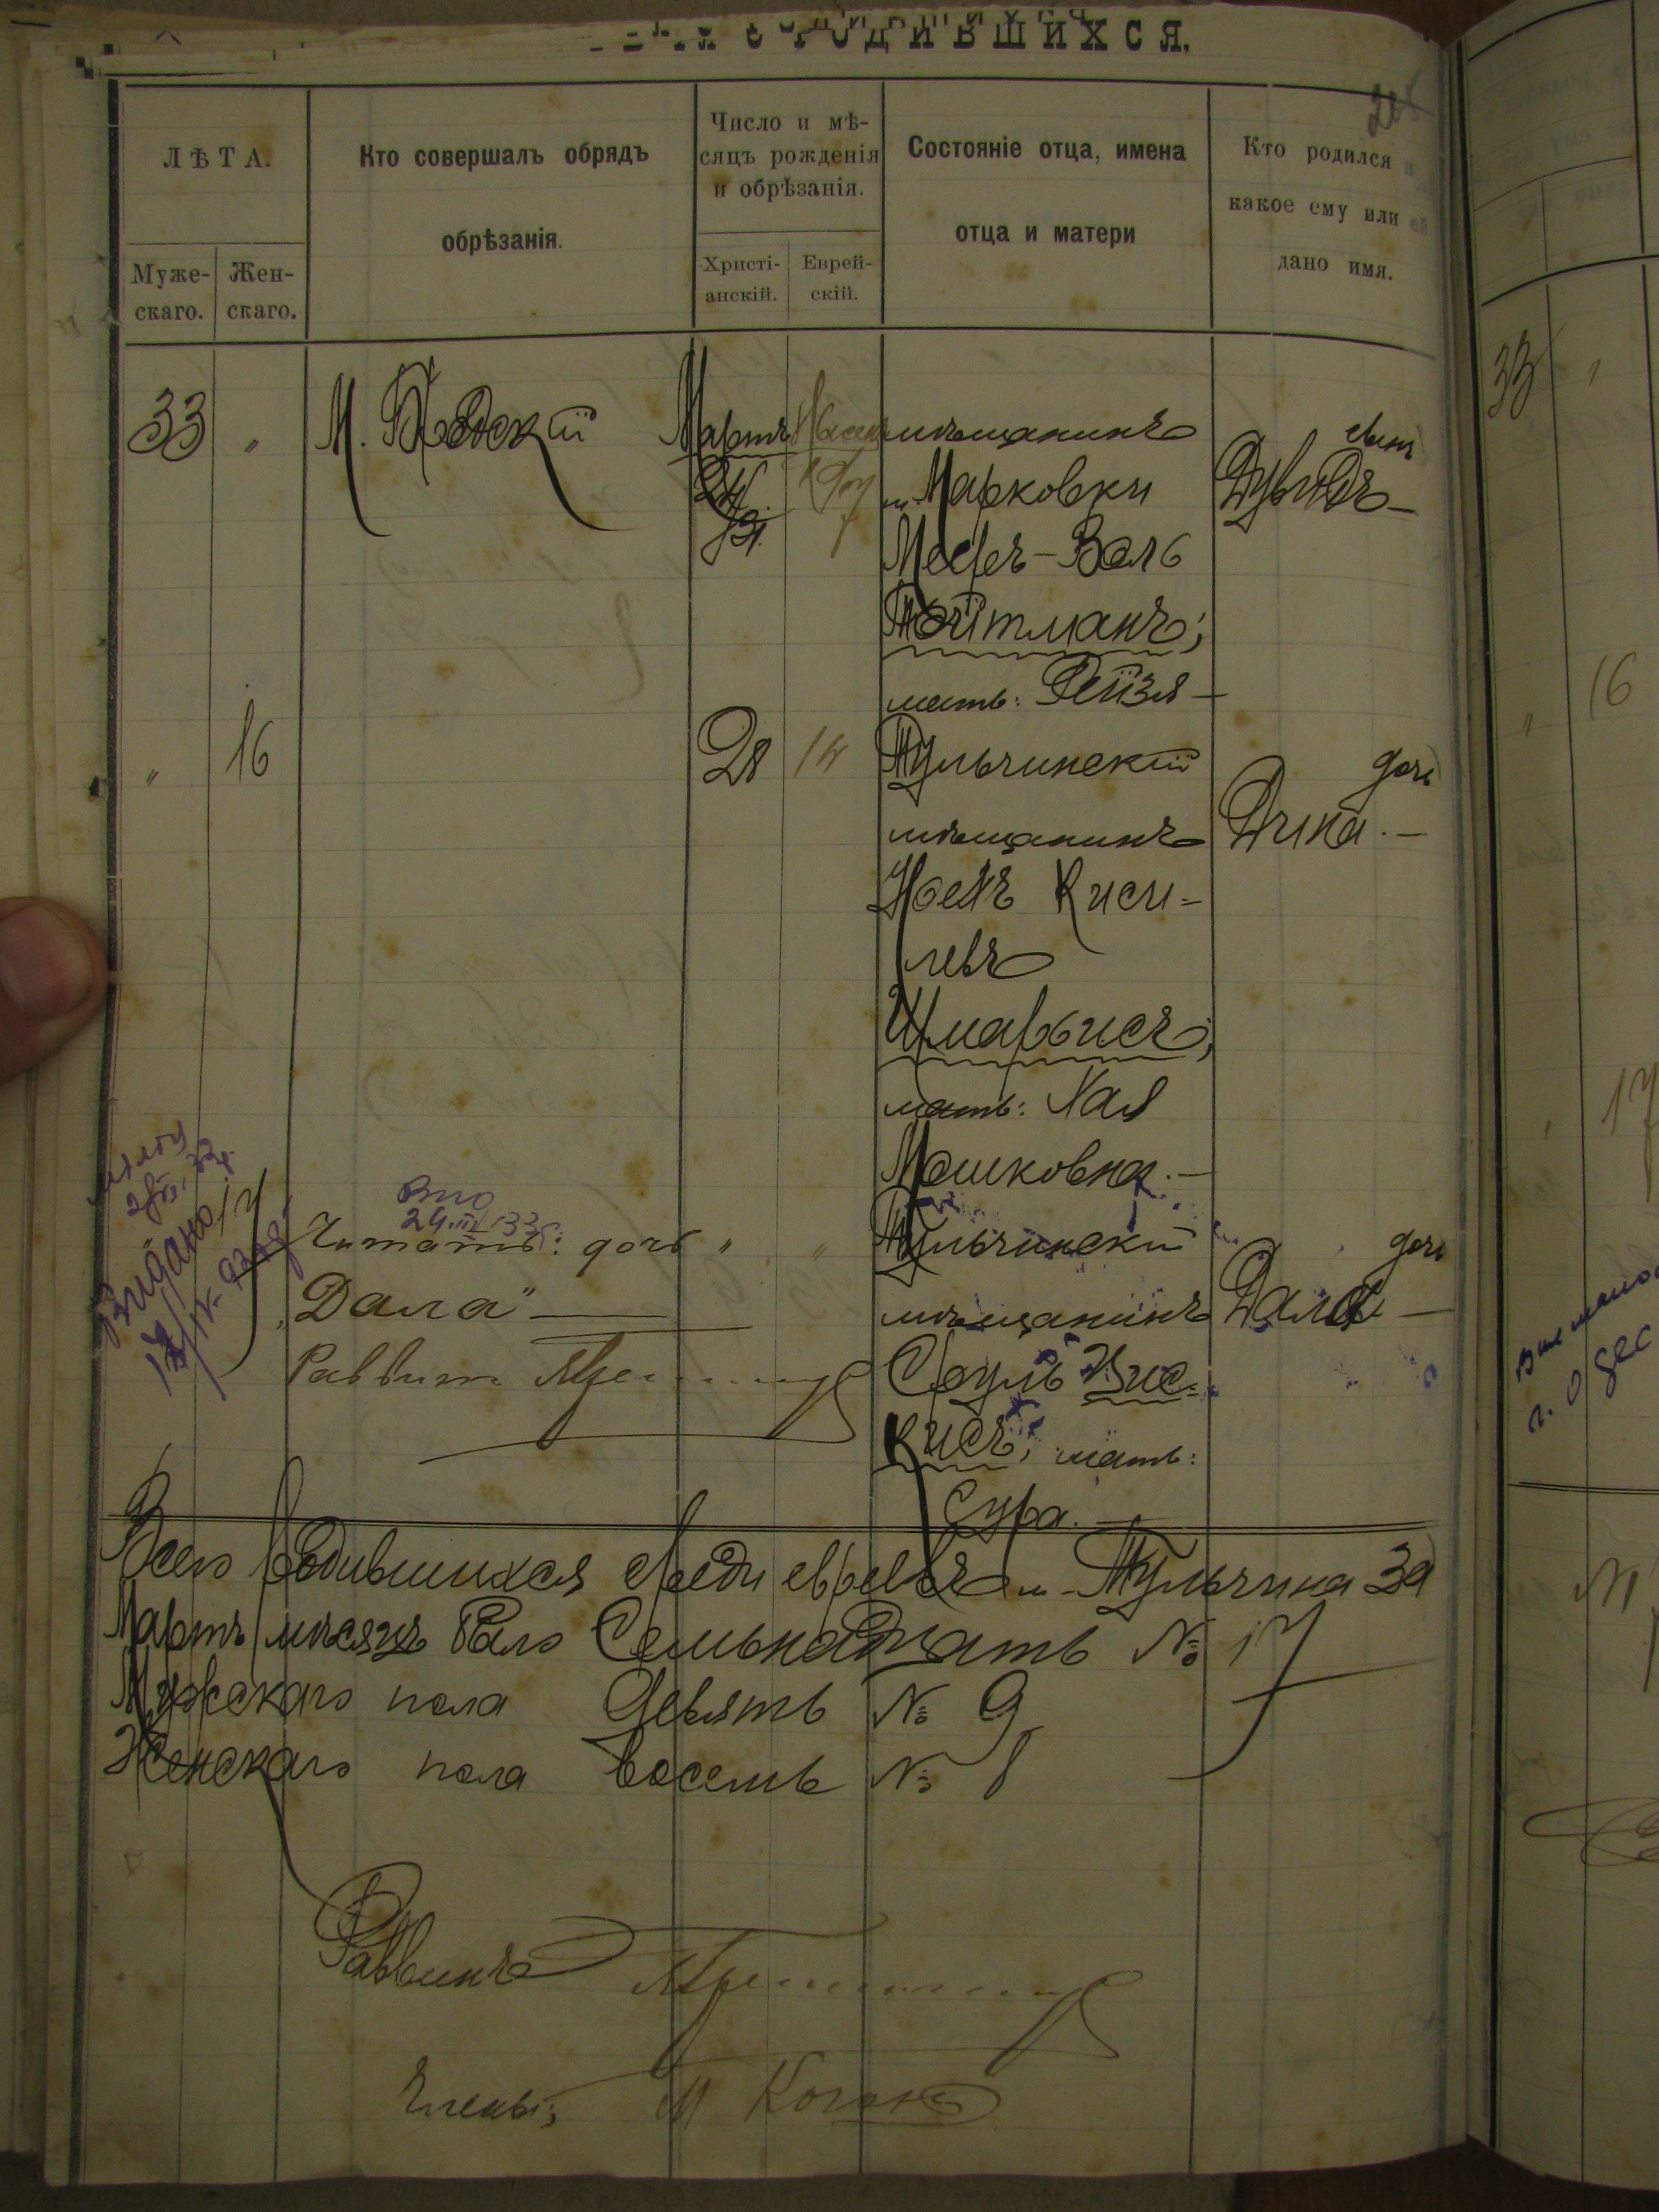 РОДИВШИХСЯ.
ЛѢТА.
Муже-
скаго.
Жен-
скаго.
Кто совершалъ обрядъ
обрѣзанія.
Число и мѣ-
сяцъ рожденія
и обрѣзанія.
Христі-
анскій.
Еврей-
скій.
Состояніе отца, имена
отца и матери
Кто родился и
какое ему или ей
дано имя.
33 "
Мартъ
24
31
мѣщанинъ
м. Марковки
Меер-Волъ
Тойтманъ;
мать: Рейзя —
сынъ
Дувидъ —
" 16
28 14
Тульчинскій
мѣщанинъ
Ноехъ Киси=
левъ
Шмарьисъ;
мать: Хая
Мошковна. —
дочь
Дина. —
Читать: дочь " "
„Дала" —
Раввинъ
Тульчинскій
мѣщанинъ
Сруль Зис=
кисъ; мать:
Сура. —
дочь
Дала —
Выдано
Всего родившихся среди евреевъ м. Тульчина за
Мартъ мѣсяцъ было Семьнадцать № 17
Мужскаго пола Девять № 9
Женскаго пола восемь № 8
Раввинъ
Члены: М Коганъ
33 "
" 16
17